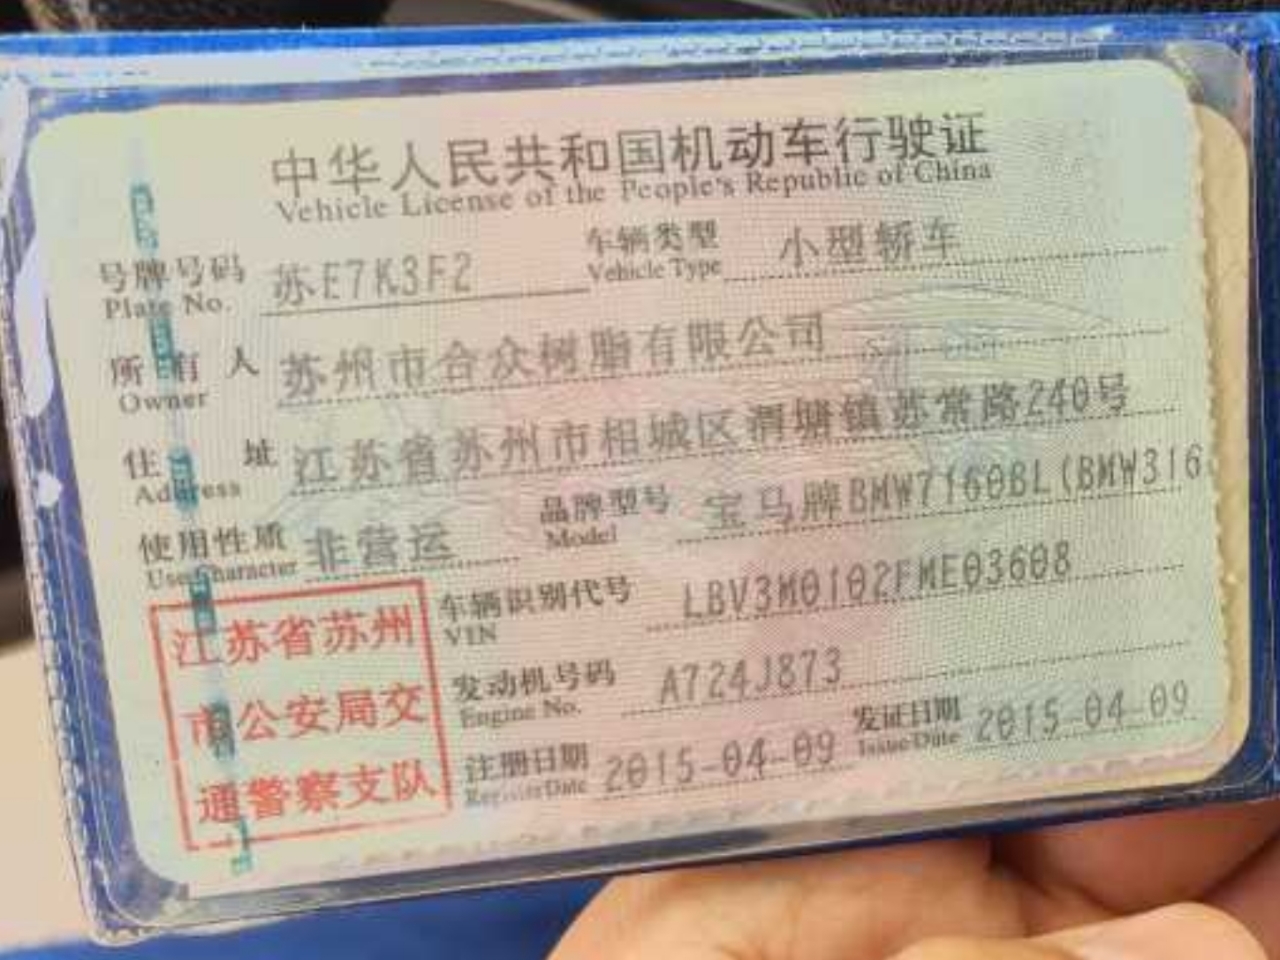 中华人民共和国机动车行驶证
Vehicle License of the People's Republic of China
号牌号码 苏E7K3F2 车辆类型 小型轿车
Plate No. Vehicle Type
所有人 苏州市合众树脂有限公司
Owner
住址 江苏省苏州市相城区渭塘镇苏常路240号
Address
使用性质 非营运 品牌型号 宝马牌BMW7160BL(BMW316
Use Character Model
江苏省苏州
市公安局交
通警察支队
车辆识别代号 LBV3M0102FME03608
VIN
发动机号码 A724J873
Engine No.
注册日期 2015-04-09 发证日期 2015-04-09
Register Date Issue Date